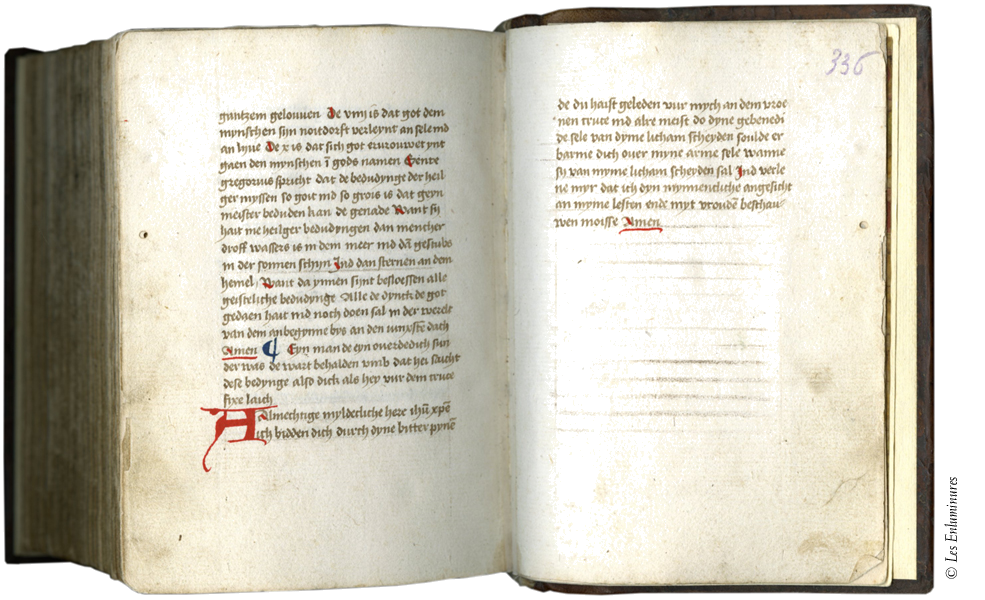 gantzem gelouven De viiij is dat got dem
mynschen sijn noitdorft verleynt an sele ind
an lyue De x is dat sich got
gaen den mynschen ī gods namen Sente
gregorius spricht dat de bedudynge der heil
ger myssen so goit ind so grois is dat geyn
meister beduden kan de genade Want sy
hait me heilger bedudyngen dan mencher
droff wassers is in dem meer ind dā gestubs
in der sonnen schyn Ind dan sternen an dem
hemel Want da ynnen synt besloessen alle
geistliche bedudynge Alle de dynck de got
gedaen hait ind noch doen sal in der werelt
van dem anbegynne bys an den iunxstē dach
Amen Eyn man de eyn overdedich sun
der was de wart behalden vmb dat hei sprich
dese bedynge also dick als hey vur dem cruce
Almechtige myldecliche here ihū xpē
ich bidden dich durch dyne bitter pynē
336
de du haist geleden vur mych an dem vroe
nen cruce ind alre meist do dyne gebenedi
de sele van dyme licham scheyden soulde er
barme dich over myne arme sele wanne
sy van myme licham scheyden sal Ind verle
ne myr dat ich dyn mynnencliche angesicht
an myme lesten ende myt vroudē beschau
wen moisse Amen
© Les Enluminures